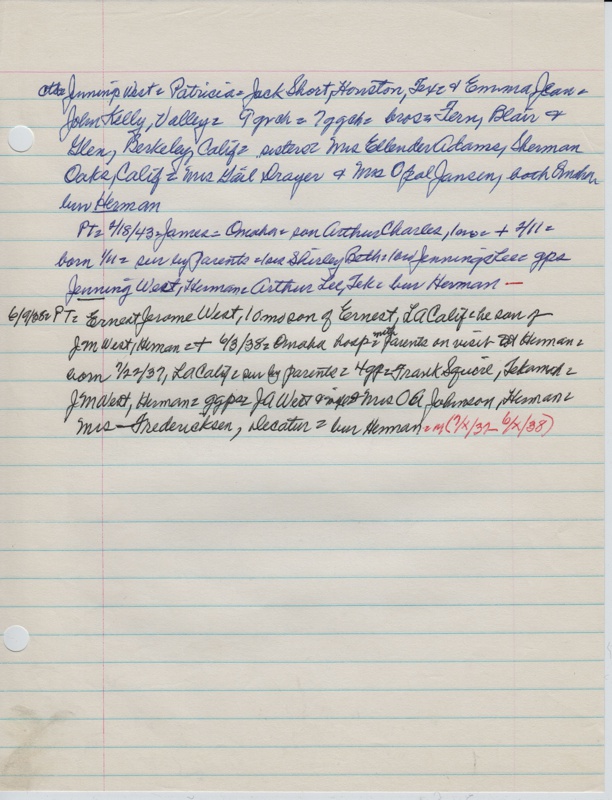 Jennings West = Patricia = Jack Short, Houston, Tex = & Emma Jean =
John Kelly, Valley = 9 gpch = 7 ggch = bros = Fern, Blair &
Glen, Berkeley, Calif = sisters = Mrs Ellender Adams, Sherman
Oaks, Calif = Mrs Gail Drayer & Mrs Opal Jansen, both Omaha
bur Herman
PT = 2/18/43 = James = Omaha = son Arthur Charles, 1 mo = + 2/11 =
born 1/11 = sur by parents = Shirley Beth = Jennings Lee = gps
Jenning West, Herman = Arthur Lee, Tek = bur Herman —
6/9/38 = PT = Ernest Jerome West, 10 mo son of Ernest, LA Calif = he son of
J M West, Herman = + 6/3/38 = Omaha hosp = with parents on visit Herman =
born 7/22/37, LA Calif = sur by parents = 4 gp = Frank Squire, Tekamah =
J M West, Herman = ggps = J A West & Mrs O A Johnson, Herman =
Mrs Fredericksen, Decatur = bur Herman = (7/X/37 - 6/X/38)